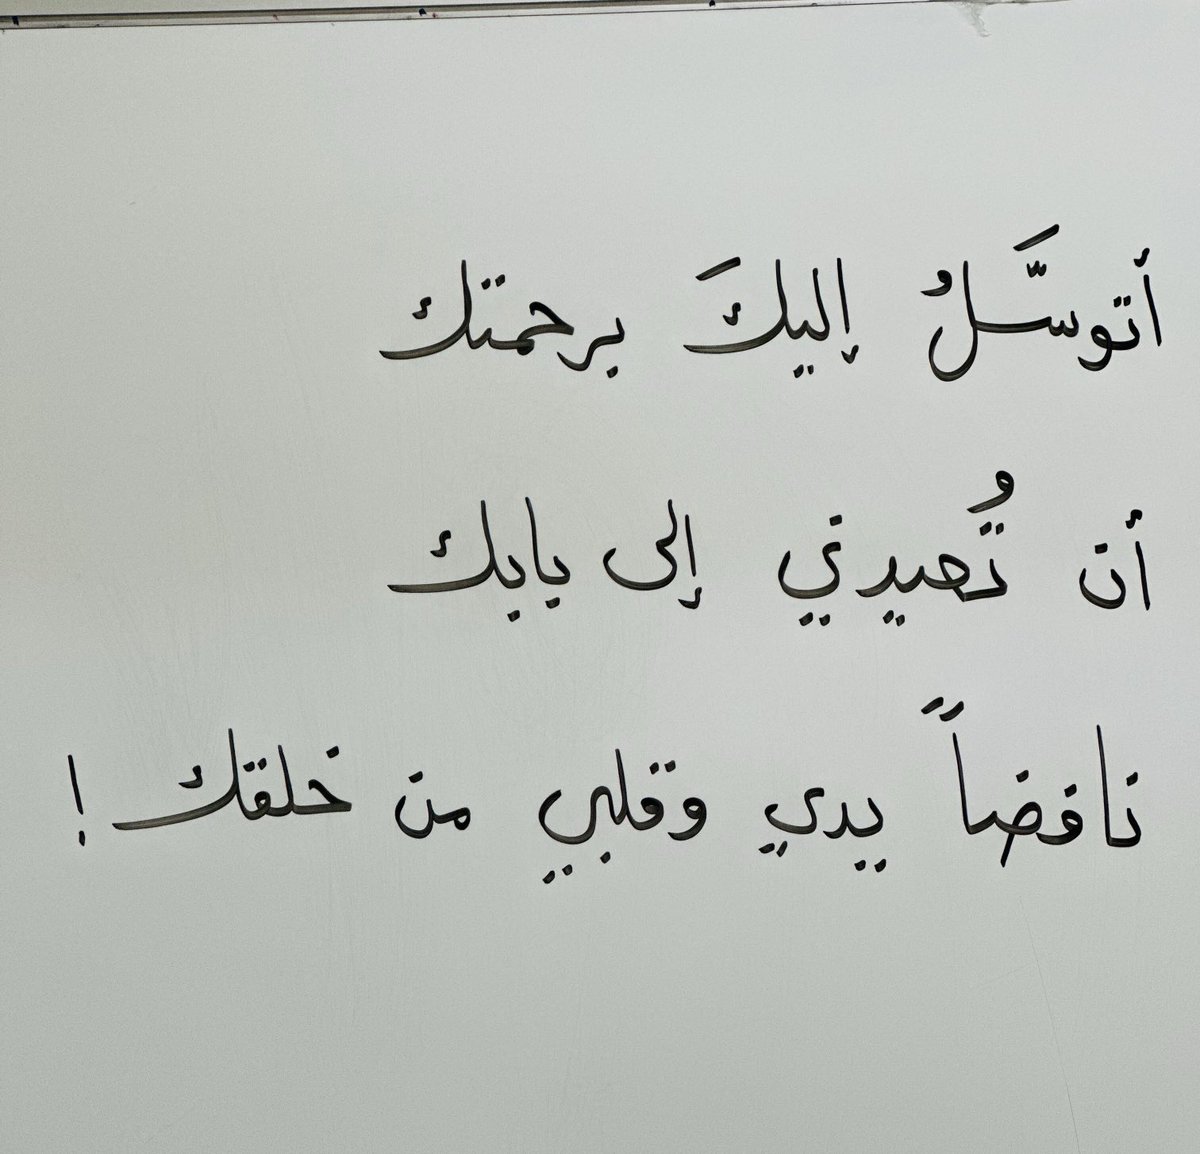 أتوسَّلُ إليكَ برحمتك
أن تُعيدني إلى بابك
نافضاً يدي وقلبي من خلقك !